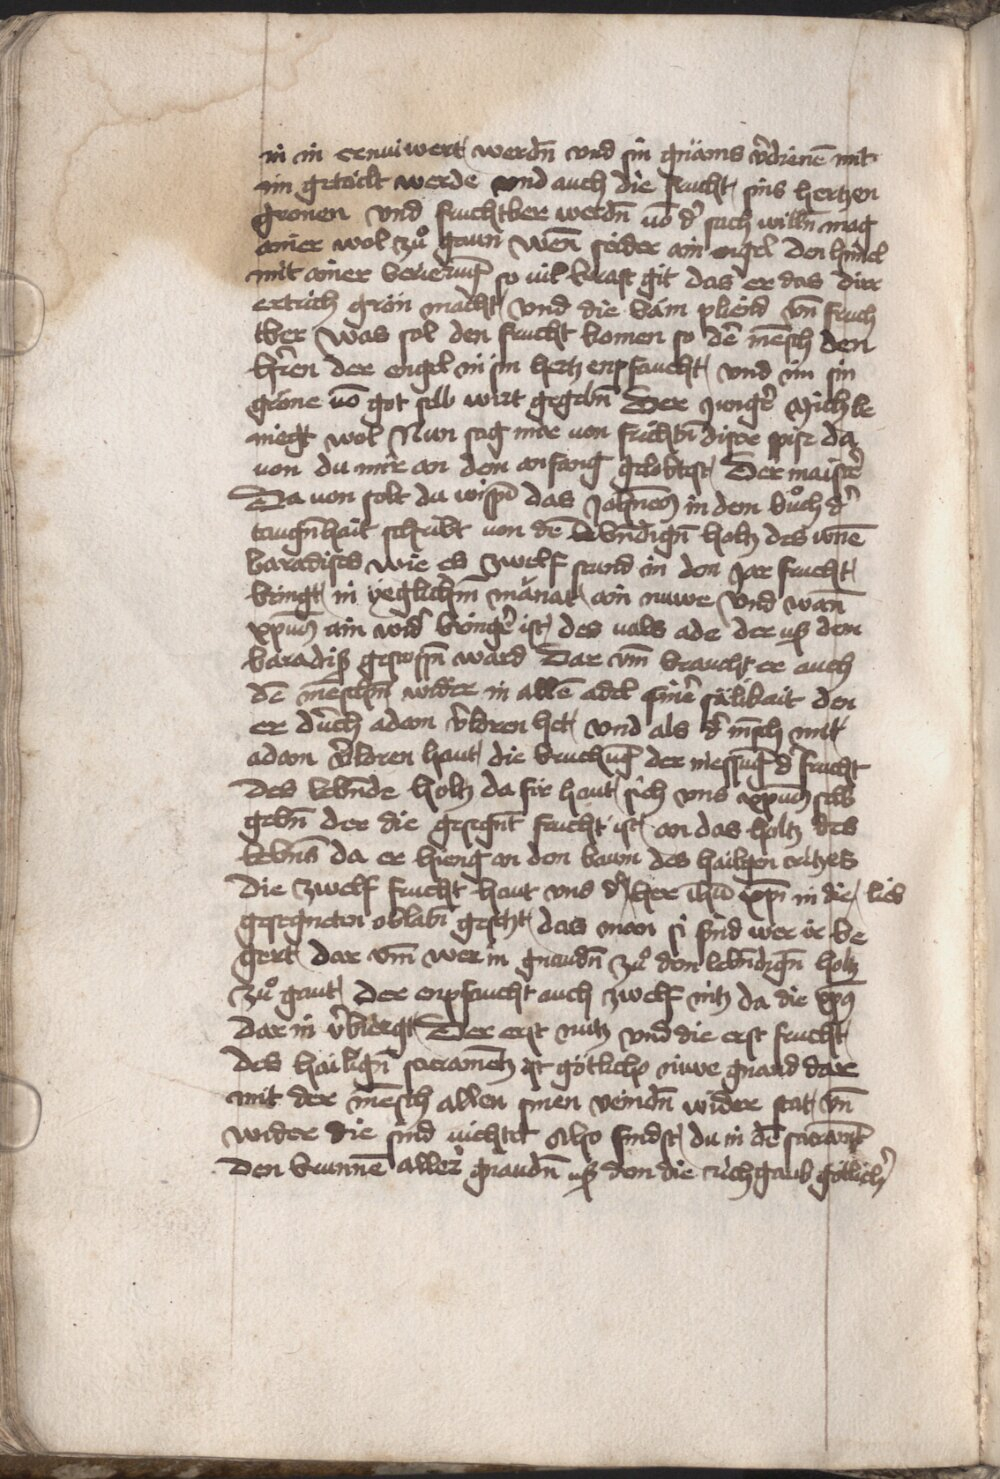 in in ernuiwert werdn̄ vnd sin gnäms v̓dienē mit
im getailt werde vnd auch die frucht sins hertzen
gronen vnd fruchtber werdn̄ uō d̓ sach willn̄ mag
ainer wol zů gaun Wen̄ seider ain engel den himel
mit ainer berierūg so uil kraft git das er das dirr
ertrich grön macht vnd die bäm pliend vn̄ fruch
tber was sol den frucht komen so dē mēsch den
hr̄en der engel in sin hertz enpfaucht vnd im sin
gröne uō got selb wirt gegebn̄ Der iunger̓ Mich be
niegt wol Nun sag mir von frichtn̄ diser spise da
von du mir an dem anfang gelobtest Der maister̓
Da uon solt du wissn̄ das John̄es in dem bůch d̓
taugn̄hait schribt uon dē lebn̄dign̄ holtz des
baradises wie es zwelf stund in dem Jar frucht
bringt in yeglichem̄ mänat ain nuwe Vnd wan̄
xpūs ain wid̓ bringer̓ ist des uals ade der uß dem
baradiß gestossn̄ ward Dar vm̄ braucht er auch
dē meschn̄ wider in allē adel siner̓ sälikait den
er durch adam v̓lorn het vnd als d̓ mēsch mit
adam v̓loren haut die bruchūg der niessūg d̓ frucht
des lebn̄de holtz da fir haut sich vns xpūs selb
gebn̄ der die gesegnt frucht ist an das holtz des
lebns̄ da er hieng an dem baum des hailgen crützes
die zwelf frucht haut vns d̓ her ihū xp̄i in die lieb
gesegneten oblatn̄ gesetzt das man si find wer ir be
gert dar vm̄ wer in gnaudn̄ zů dem lebn̄dign̄ holtz
zů gaut der enpfaucht auch zwelf nütz da die xp̄s
dar in v̓birgt Der erst nutz vnd die erst frucht
des hailign̄ sacramētz ist götliche niwe gnaud dar
mit der mēsch allen sinen veindn̄ wider stat vn̄
wider die sind uichtet Also findst du in dē sacramēt
den brunnē aller̓ gnaudn̄ uß dem die rich gaub götlich̓